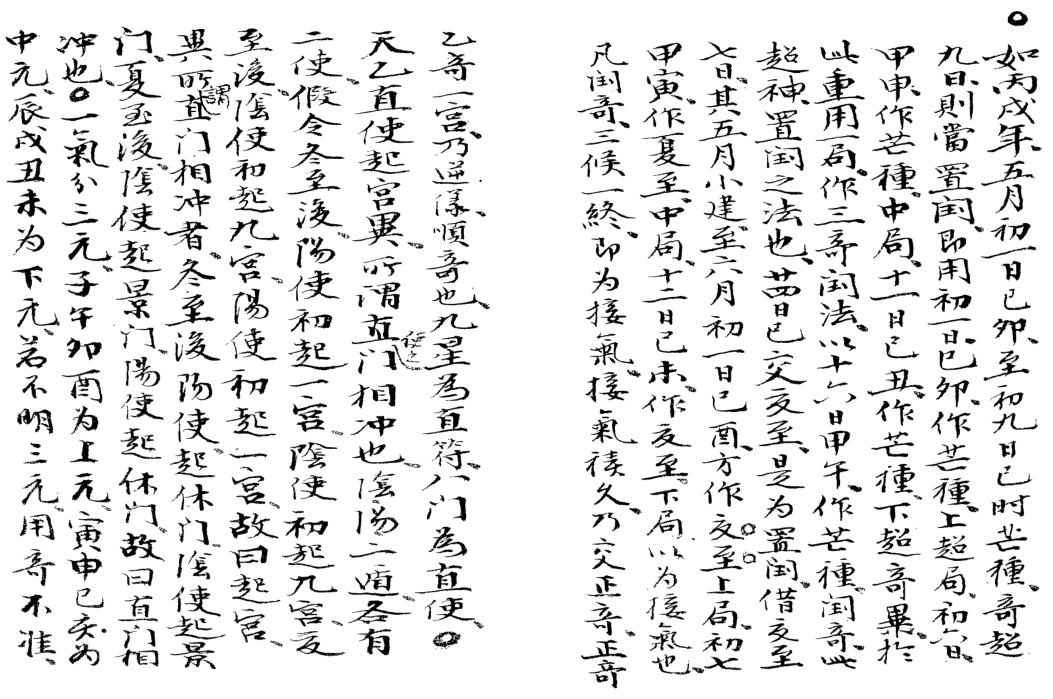 如丙戌年五月初一日己卯至初九日巳时芒種奇超
九日則當置閏即用初一日己卯作芒種上超局初六日
甲申作芒種中局十一日己丑作芒種下超奇畢於
此重用一局作三奇閏法以十六日甲午作芒種閏奇此
超神置閏之法也廿四日巳交夏至是为置閏借夏至
七日其五月小建至六月初一日己酉方作夏至上局初七
甲寅作夏至中局十二日己未作夏至下局以为接氣也
凡閏奇三候一終即为接氣接氣積久乃交正奇正奇
乙奇一宫乃逆儀順奇也九星為直符八门為直使
天乙直使起宫異所謂直门相冲也陰陽二遁各有
二使假令冬至後陽使初起一宫陰使初起九宫夏
至後陰使初起九宫陽使初起一宫故曰起宫
異所謂直门相冲者冬至後陽使起休门陰使起景
门夏至後陰使起景门陽使起休门故曰直门相
冲也一氣分三元子午卯酉为上元寅申巳亥为
中元辰戌丑未为下元若不明三元用奇不准